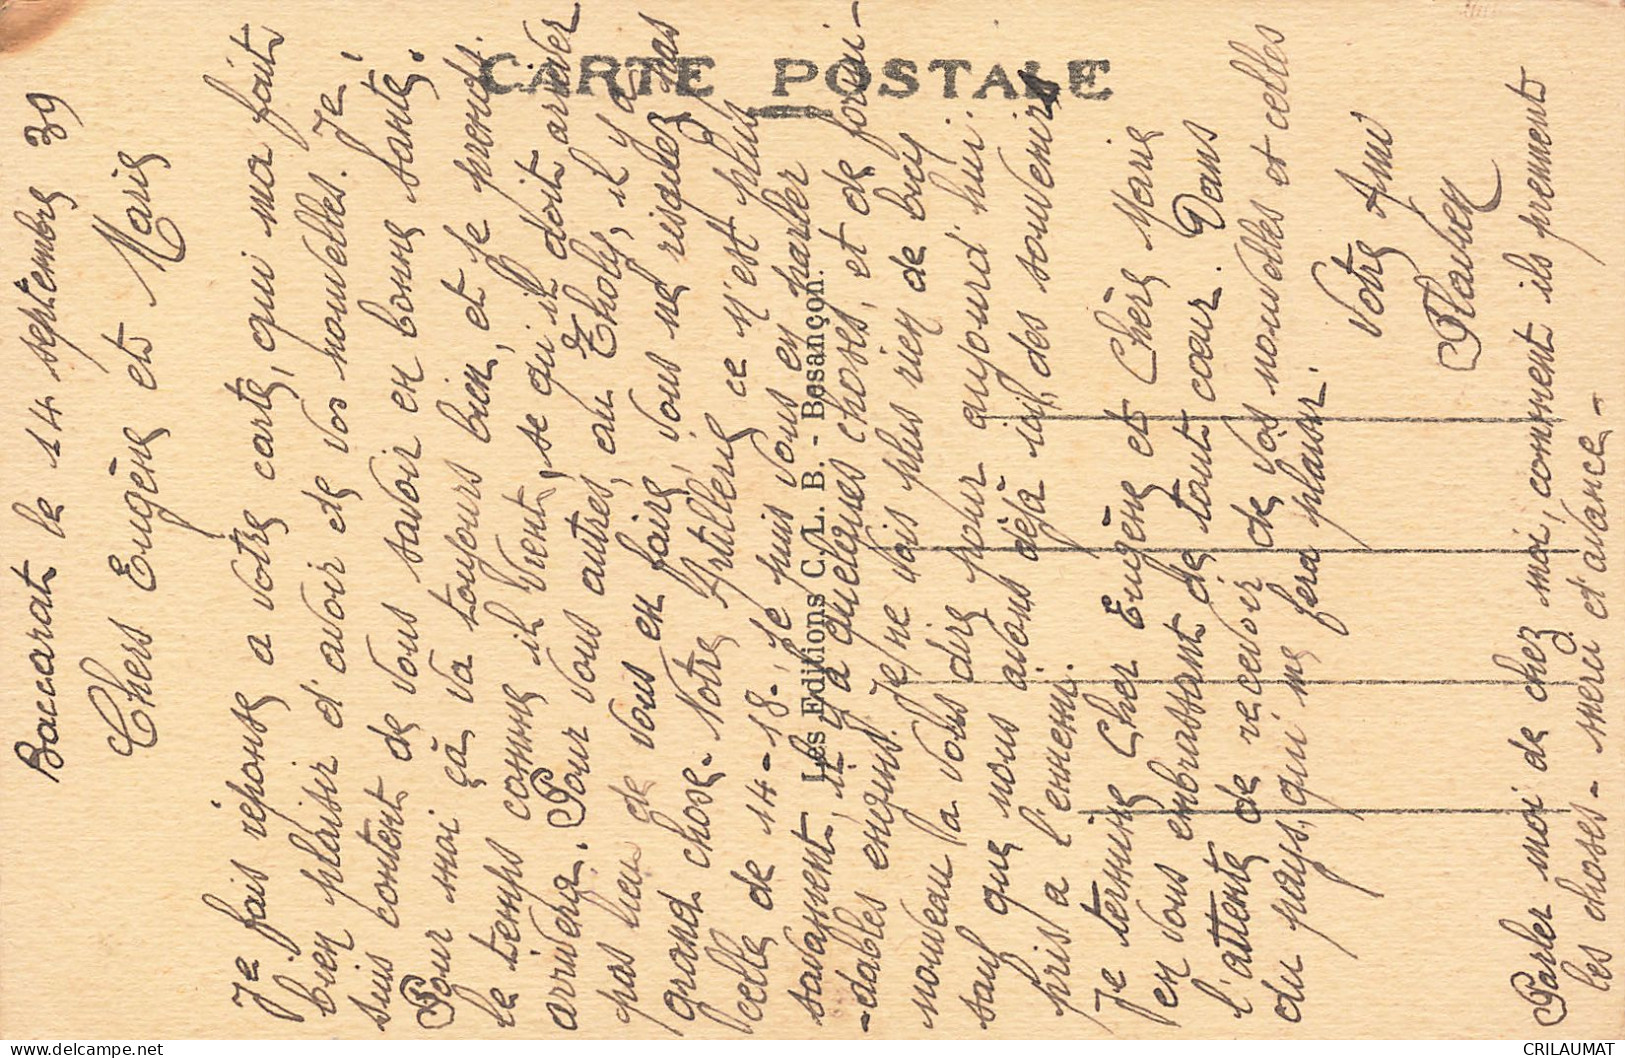 CARTE POSTALE
Les Editions C. L. B. - Besançon.
Baccarat le 14 septembre 39
Chers Eugène et Marie
Je fais réponse a votre carte, qui ma fait
bien plaisir d'avoir de vos nouvelles. Je
suis content de vous savoir en bonne santé.
Pour moi çà va toujours bien, et je prends
le temps comme il vient, se qui doit arriver
arrivera. Pour vous autres, au Tholy, il y a
pas lieu de vous en faire, vous ne risquez pas
grand chose. Notre Artillerie ce n'est plus
celle de 14-18. Je puis vous en parler
savamment, il y a quelques choses, et de formi-
-dables engins. Je ne vois plus rien de bien
nouveau a vous dire pour aujourd'hui.
sauf que nous avons déjà ici des souvenirs
pris a l'ennemi.
Je termine Cher Eugène et Chère Marie
en vous embrassant de tout cœur. Dans
l'attente de recevoir de vos nouvelles et celles
du pays, qui me fera plaisir.
Votre Ami
Flavien
Parler moi de chez moi, comment ils prennent
les choses - merci d'avance -
CRILAUMAT